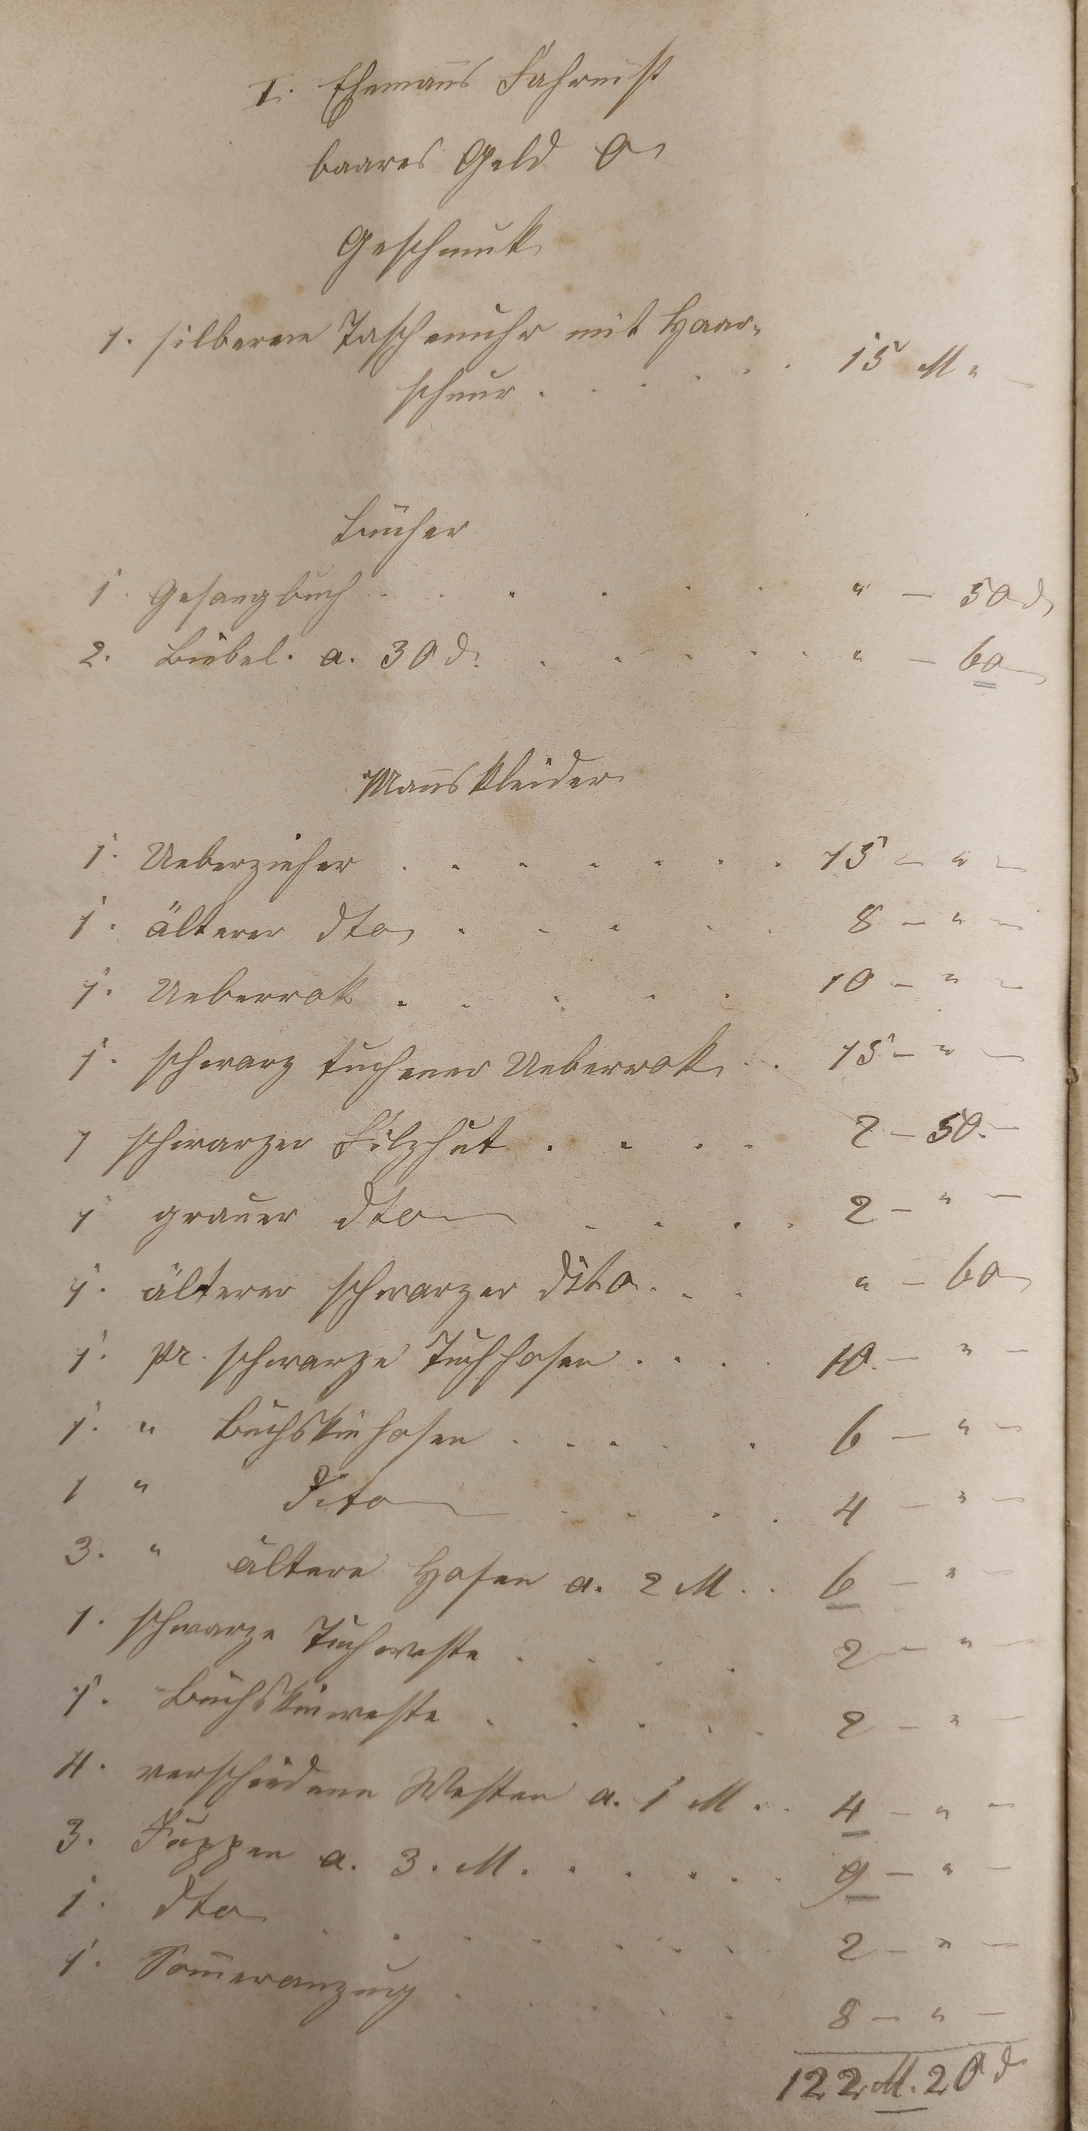 I. Ehemans Fahrnist
baares Geld 0
Geschmuk
1. silberne Taschenuhr mit Haar-
schnur . . . . . . 15 M " —
Bücher
1. Gesangbuch . . . . . . " — 50 d
2. Biebel. a. 30 d. . . . . . " — 60
Manskleider
1. Ueberzieher . . . . . . . 15 — " —
1. älterer dto . . . . . 8 — " —
1. Ueberrok . . . . . 10 — " —
1. schwarz tuchener Ueberrok . . 15 — " —
1 schwarzer Filzhut . . . . 2 — 50. —
1 grauer dto . . . . 2 — " —
1. älterer schwarzer dito . . . " — 60
1. pr. schwarze Tuchhosen . . . . 10. — " —
1. " Buchskinhosen . . . . . 6 — " —
1 " dito . . . . 4 — " —
3. " ältere Hosen a. 2 M . . 6 — " —
1. schwarze Tuchweste . . . . 2 — " —
1. Buchskinweste . . . . . 2 — " —
4. verschiedene Westen a. 1 M . . 4 — " —
3. Juppen a. 3. M. . . . . . 9 — " —
1. dto . . . . . . . 2 — " —
1. Someranzug . . . . . 8 — " —
122 M. 20 d